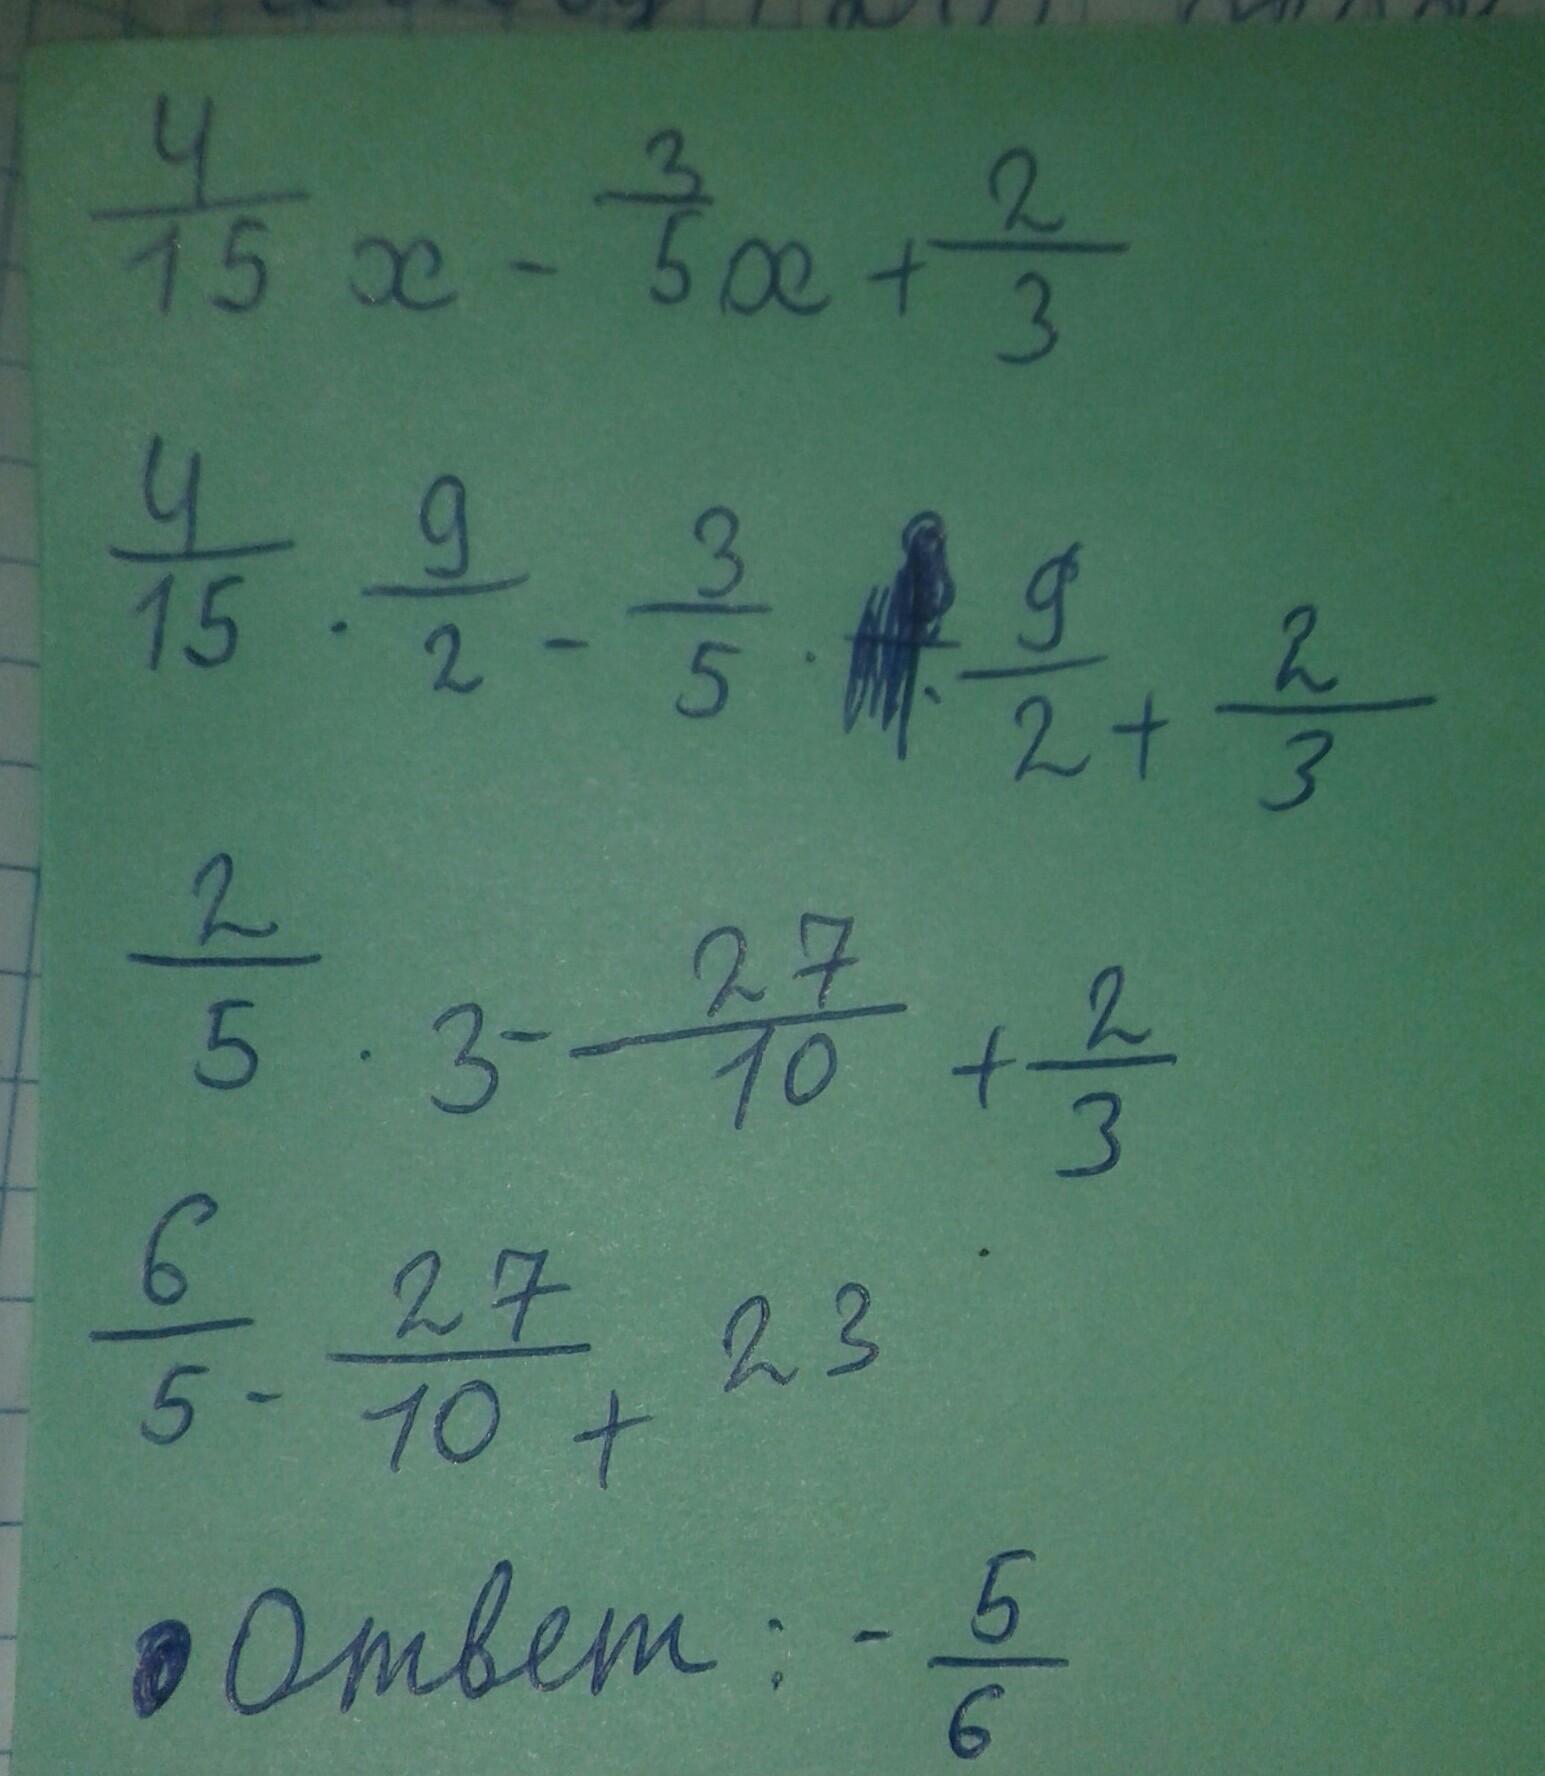 4/15 x - 3/5 x + 2/3
4/15 · 9/2 - 3/5 · · 9/2 + 2/3
2/5 · 3 - 27/10 + 2/3
6/5 - 27/10 + 23
Ответ: - 5/6